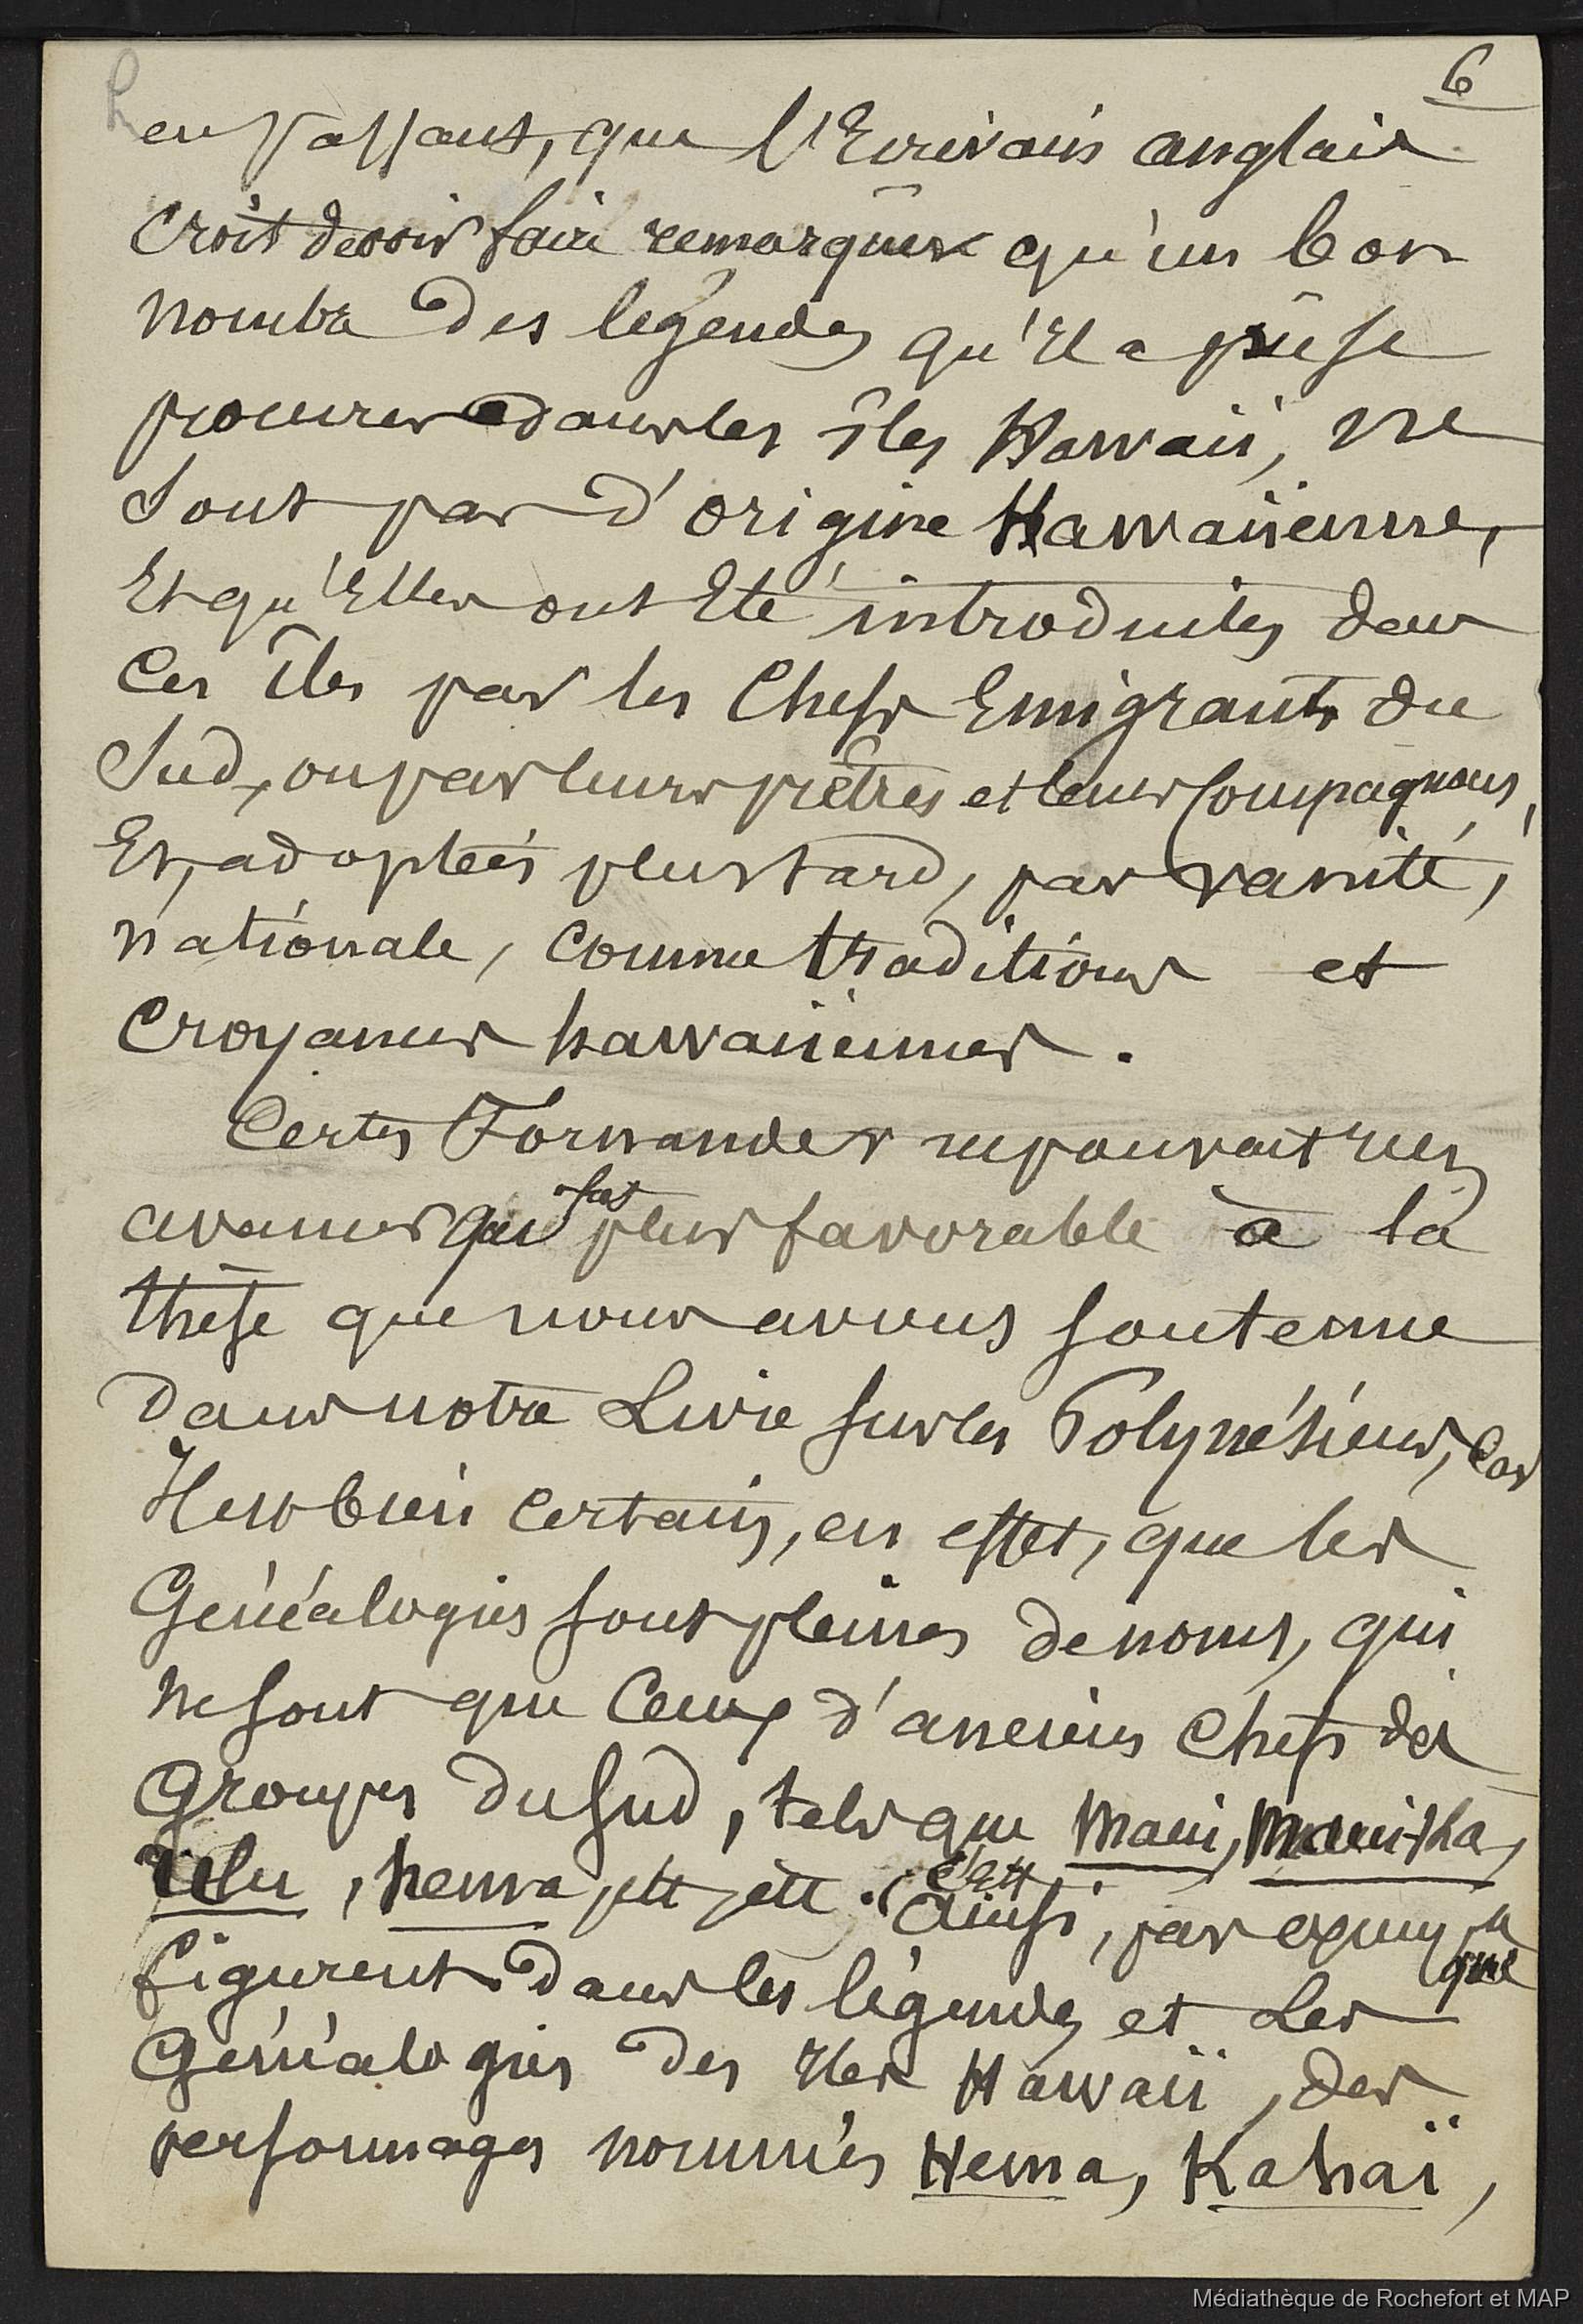 6
en passant, que l'Ecrivain anglais
croit devoir faire remarquer qu'un bon
nombre des légendes qu'il a pu se
procurer dans les îles Hawaii, ne
sont pas d'origine Hawaiienne,
Et qu'Elles ont Eté introduites dans
ces îles par les Chefs Emigrants du
Sud, ou par leurs prêtres et leurs compagnons,
Et, adoptées plus tard, par vanité,
nationale, comme traditions et
Croyances hawaiiennes.
Certes Fornander ne pouvait rien
avancer qui fut plus favorable à la
thèse que nous avons soutenue
dans notre Livre sur les Polynésiens, Car
Il est bien certain, en effet, que les
Généalogies sont pleines de noms, qui
ne sont que Ceux d'anciens Chefs des
Groupes du Sud, tels que Maui,
Ulu, hema, ett, ett. C'est Ainsi, par exemple que
figurent dans les légendes et Les
Généalogies des Iles Hawaii, des
personnages nommés Hema, Kahaï,
Médiathèque de Rochefort et MAP